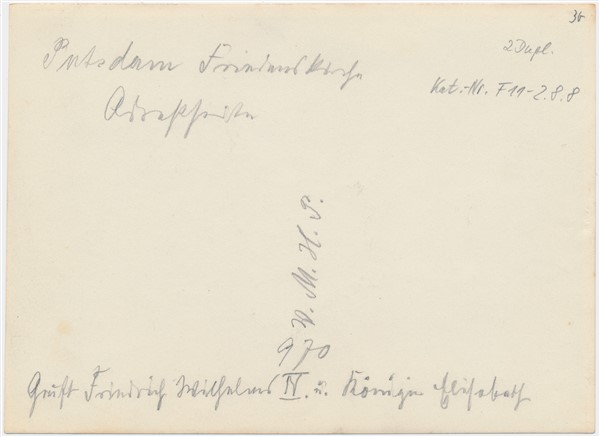 36
2 Dupl.
Potsdam Friedenskirche
Kat.-Nr. F11-Z.8.8
W. M. H. P.
970
Gruft Friedrich Wilhelms IV. u. Königin Elisabeth